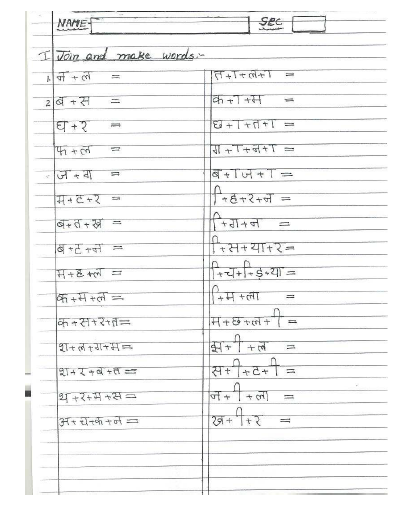 NAME- SEC
I Join and make words:-
1. न + ल =
त + ा + ल + ा =
2 ब + स =
क + ा + म =
घ + र =
छ + ा + त + ा =
फ + ल =
ग + ा + न + ा =
ज + ग =
ब + ा ज + ा =
म + ट + र =
ि + ह + र + न =
ब + त + ख =
ि + ग + न =
ब + ट + न =
ि + स + या + र =
म + ह + ल =
ि + च + ि + ड़ + या =
क + म + ल =
ि + म + ला =
क + स + र + त =
म + छ + ल + ी =
श + ल + ग + म =
झ + ी + ल =
श + र + ब + त =
स + ी + ट + ी =
थ + र + म + स =
न + ी + ला =
अ + च + क + न =
ख + ी + र =